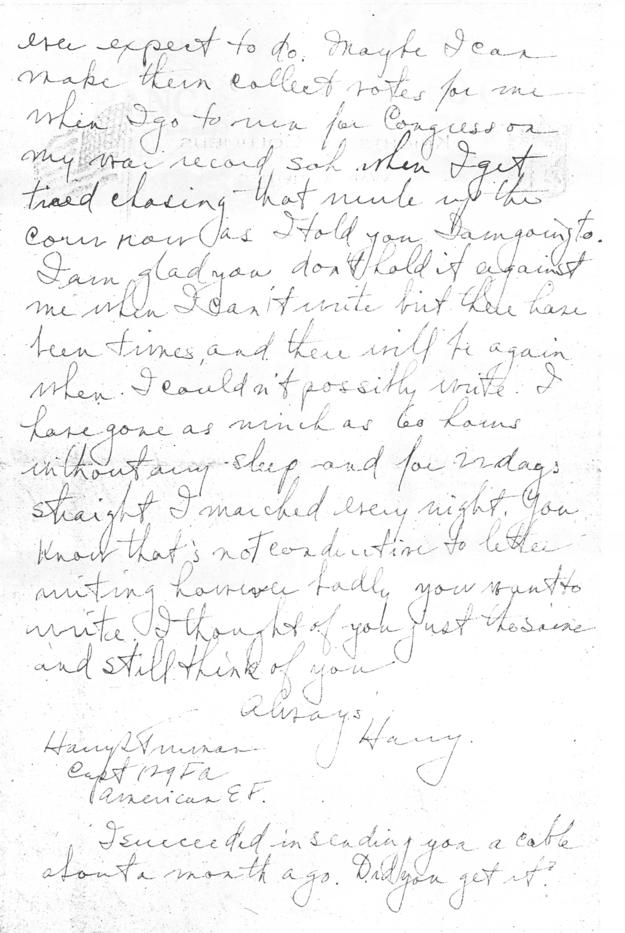 ever expect to do. Maybe I can
make them collect votes for me
when I go to run for Congress on
my war record soh when I get
tired chasing that mule up the
corn row as I told you I am going to.
I am glad you don't hold it against
me when I can't write but there have
been times, and there will be again
when I couldn't possibly write. I
have gone as much as 60 hours
without any sleep and for 22 days
straight I marched every night. You
know that's not conductive to letter
writing however badly you want to
write. I thought of you just the same
and still think of you
Always
Harry.
Harry S Truman
Capt 129 FA
American E.F.
I succeeded in sending you a cable
about a month ago. Did you get it?